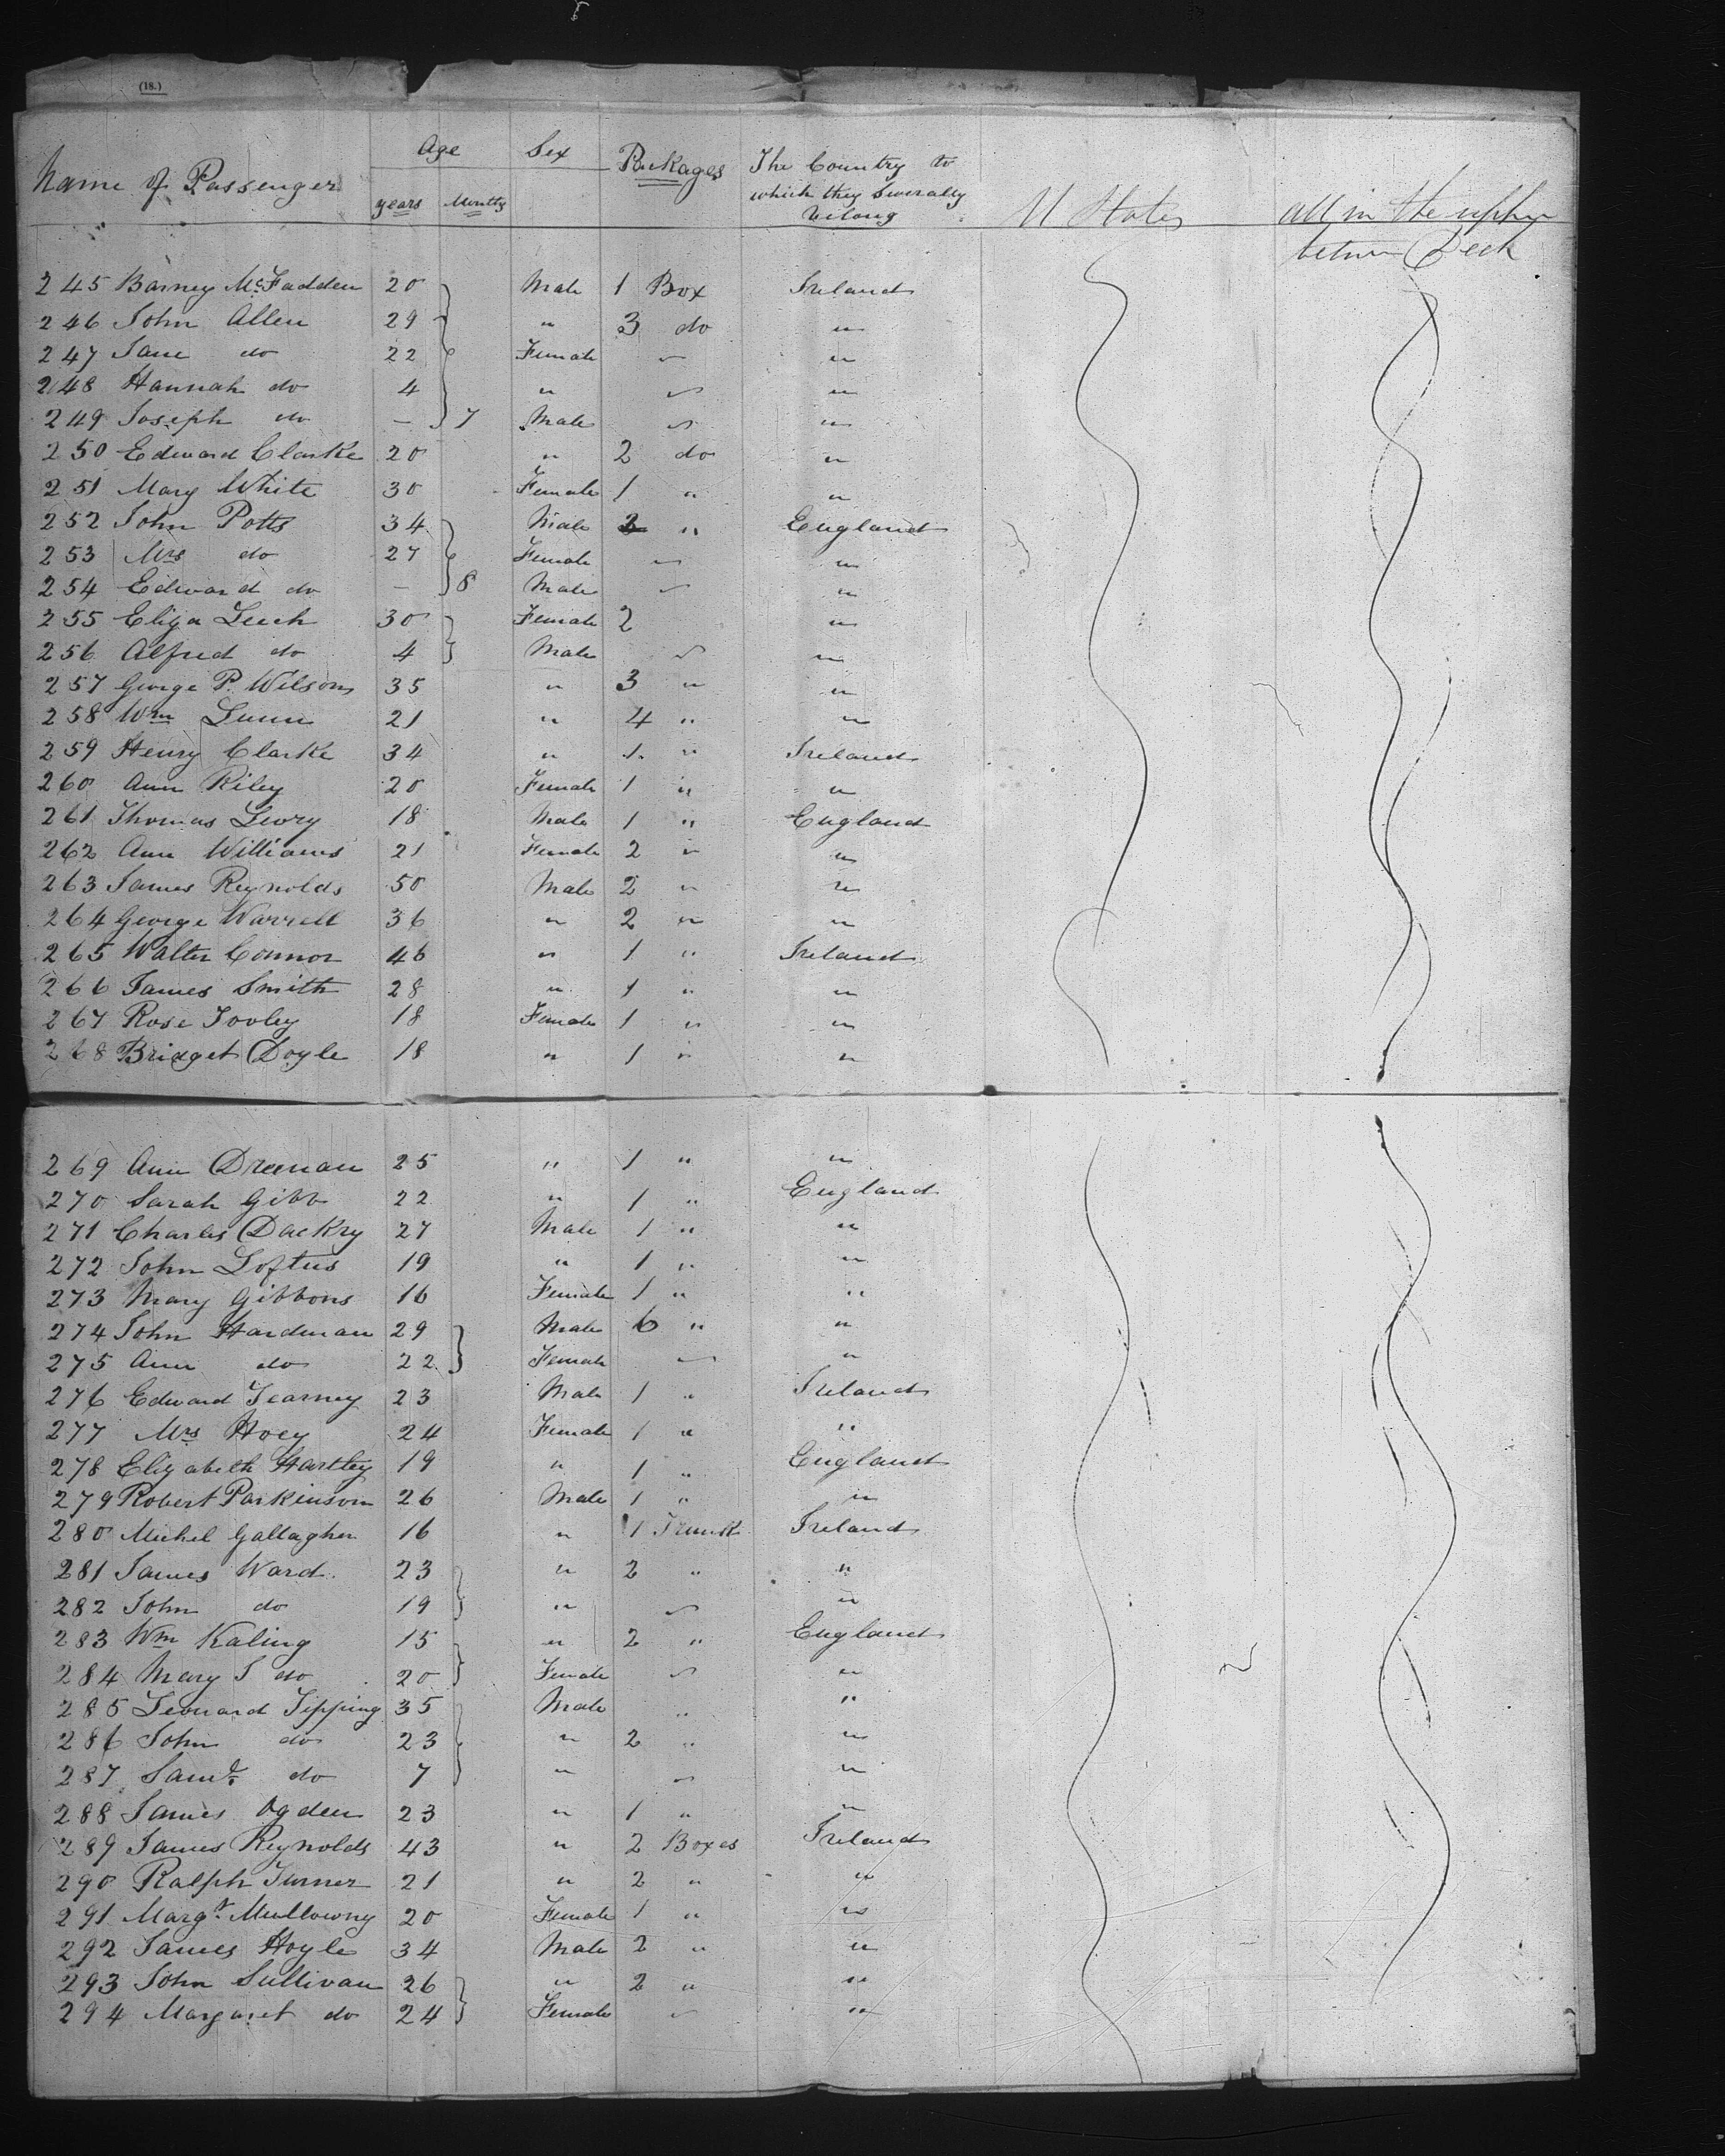 (18.)
Name of Passenger Age Sex Packages The Country to
years Months which they Severally
belong U States all in the upper
between Deck
245 Barney McFadden 20 Male 1 Box Ireland
246 John Allen 29 " 3 do "
247 Jane do 22 Female "
248 Hannah do 4 " "
249 Joseph do – 7 Male "
250 Edward Clarke 20 " 2 do "
251 Mary White 30 Female 1 " "
252 John Potts 34 Male 2 " England
253 Mrs do 27 Female "
254 Edward do – 8 Male "
255 Eliza Leech 30 Female 2 "
256 Alfred do 4 Male "
257 George P. Wilson 35 " 3 " "
258 Wm Lunn 21 " 4 " "
259 Henry Clarke 34 " 1 " Ireland
260 Ann Riley 20 Female 1 " "
261 Thomas 18 Male 1 " England
262 Ann Williams 21 Female 2 " "
263 James Reynolds 50 Male 2 " "
264 George Warrell 36 " 2 " "
265 Walter Connor 46 " 1 " Ireland
266 James Smith 28 " 1 " "
267 Rose 18 Female 1 " "
268 Bridget Doyle 18 " 1 " "
269 Ann Dreenan 25 " 1 " "
270 Sarah Gibb 22 " 1 " England
271 Charles Dackry 27 Male 1 " "
272 John Loftus 19 " 1 " "
273 Mary Gibbons 16 Female 1 " "
274 John Hardman 29 Male 6 " "
275 Ann do 22 Female "
276 Edward Tearney 23 Male 1 " Ireland
277 Mrs Hoey 24 Female 1 " "
278 Elizabeth Hartley 19 " 1 " England
279 Robert Parkinson 26 Male 1 " "
280 Michel Gallagher 16 " 1 Trunk Ireland
281 James Ward 23 " 2 " "
282 John do 19 " "
283 Wm Kaling 15 " 2 " England
284 Mary J do 20 Female "
285 Leonard Tipping 35 Male " "
286 John do 23 " 2 " "
287 Saml. do 7 " "
288 James Ogden 23 " 1 " "
289 James Reynolds 43 " 2 Boxes Ireland
290 Ralph Turner 21 " 2 " "
291 Margt. Mullowny 20 Female 1 " "
292 James Hoyle 34 Male 2 " "
293 John Sullivan 26 " 2 " "
294 Margaret do 24 Female "